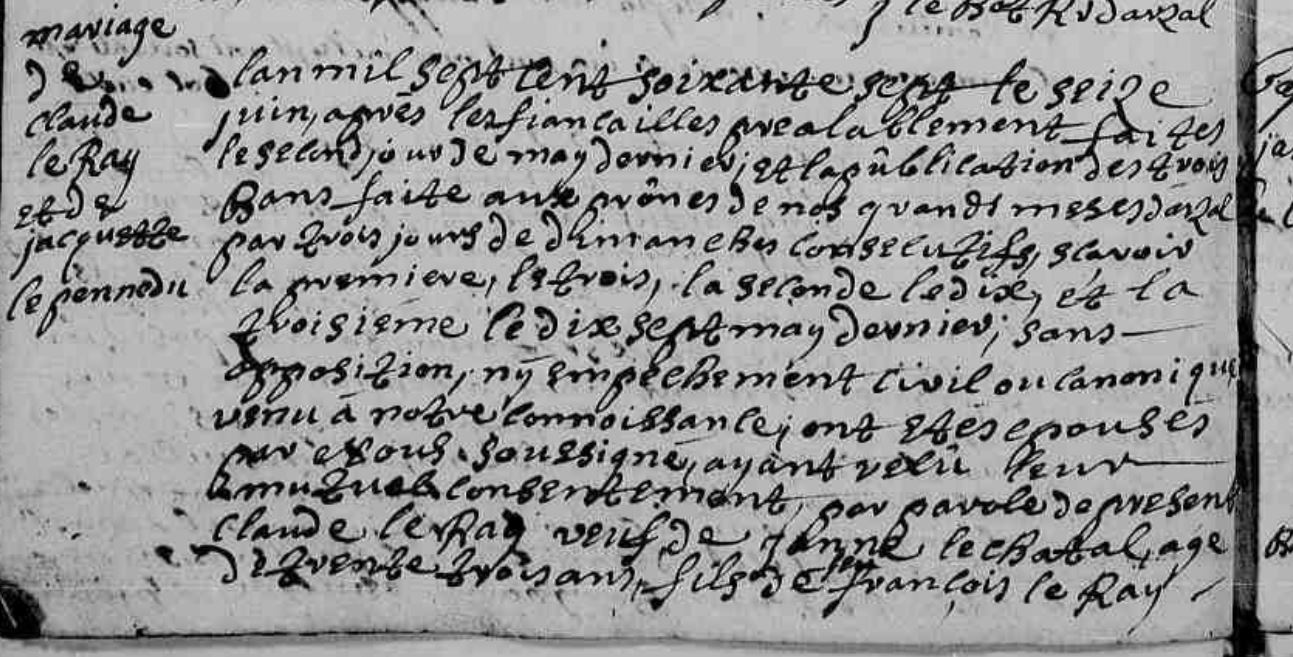 j le Bot Rr darzal
mariage
de
claude
le Ray
et de
jacquette
le pennedu
lan mil sept cent soixante sept le seize
juin, après les fiancailles prealablement faites
le second jour de may dernier; et la publication des trois
Bans faite aux prônes de nos grandes messes darzal
par trois jours de dimanches consecutifs, scavoir
la premiere, le trois, la seconde le dix, et la
troisième le dix sept may dernier; sans
opposition, ny empéchement civil ou canonique
venu à notre connoissance; ont etés epousés
par Soussigné, ayant reçû leur
mutuel consentement, par parole de present
claude le Ray veuf de janne le chatal, age
de trente trois ans, fils de feu françois le Ray